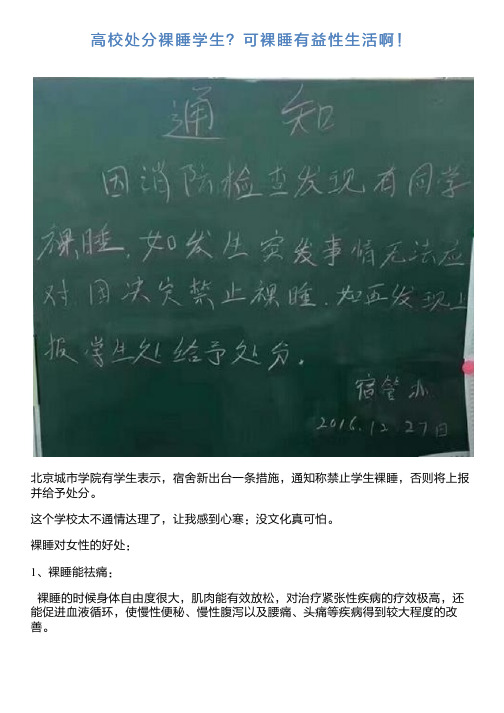 高校处分裸睡学生？可裸睡有益性生活啊！
通 知
因消防检查发现有同学
裸睡，如发生突发事情无法应
对.因决定禁止裸睡.如再发现上
报学生处给予处分。
宿管办
2016.12.27日
北京城市学院有学生表示，宿舍新出台一条措施，通知称禁止学生裸睡，否则将上报
并给予处分。
这个学校太不通情达理了，让我感到心寒：没文化真可怕。
裸睡对女性的好处：
1、裸睡能祛痛：
裸睡的时候身体自由度很大，肌肉能有效放松，对治疗紧张性疾病的疗效极高，还
能促进血液循环，使慢性便秘、慢性腹泻以及腰痛、头痛等疾病得到较大程度的改
善。